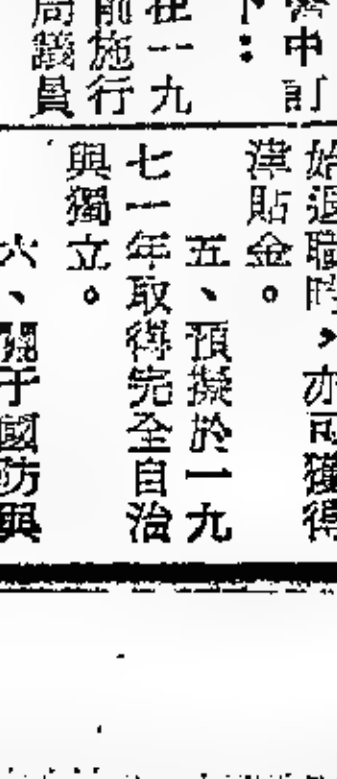 中訂
下：
在一九
前施行
局議員
始退職時，亦可獲得
津貼金。
五、預擬於一九
七一年取得完全自治
與獨立。
六、關于國防與